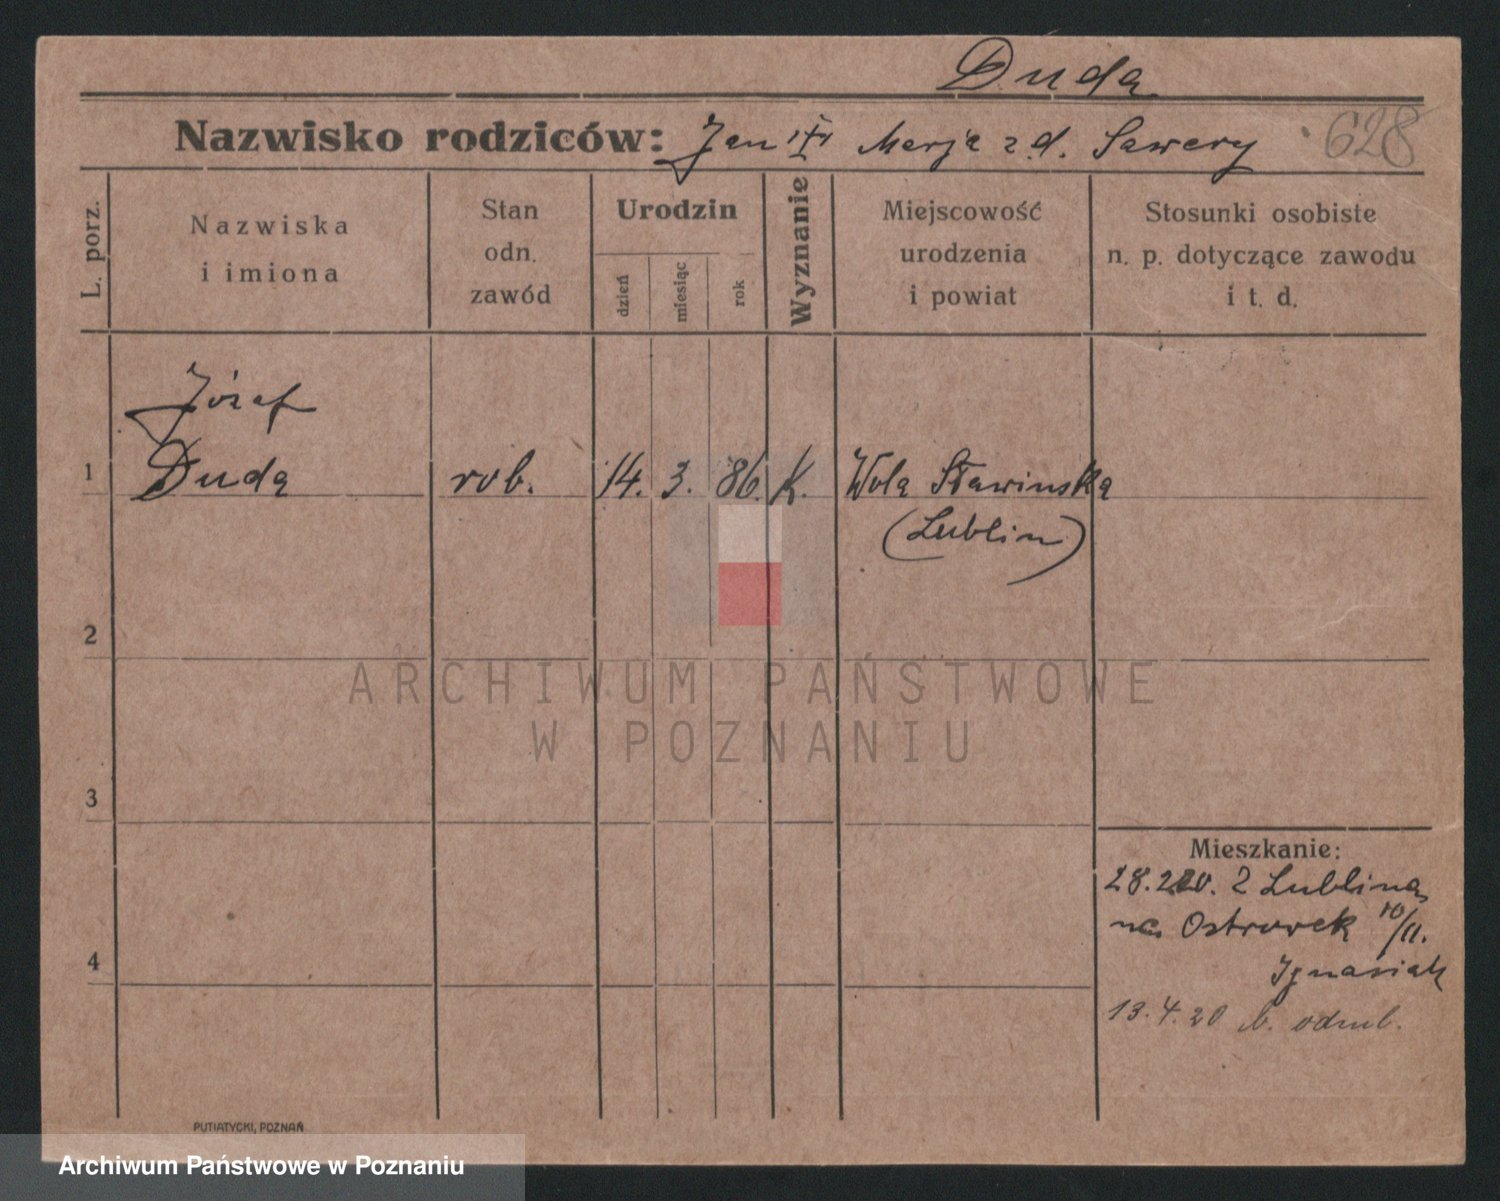 Duda
Nazwisko rodziców: Jan Marja z d. Sawery 628
L. porz.
Nazwiska
i imiona
Stan
odn.
zawód
Urodzin
dzień
miesiąc
rok
Wyznanie
Miejscowość
urodzenia
i powiat
Stosunki osobiste
n. p. dotyczące zawodu
i t. d.
Józef
1 Duda rob. 14. 3. 86. K. Wola Sławinska
(Lublin)
2
3
4
ARCHIWUM PAŃSTWOWE
W POZNANIU
Mieszkanie:
Z Lublina
na Ostrówek 10/II.
Ignasiak
13.4.20 b. odmb.
PUTIATYCKI, POZNAŃ
Archiwum Państwowe w Poznaniu